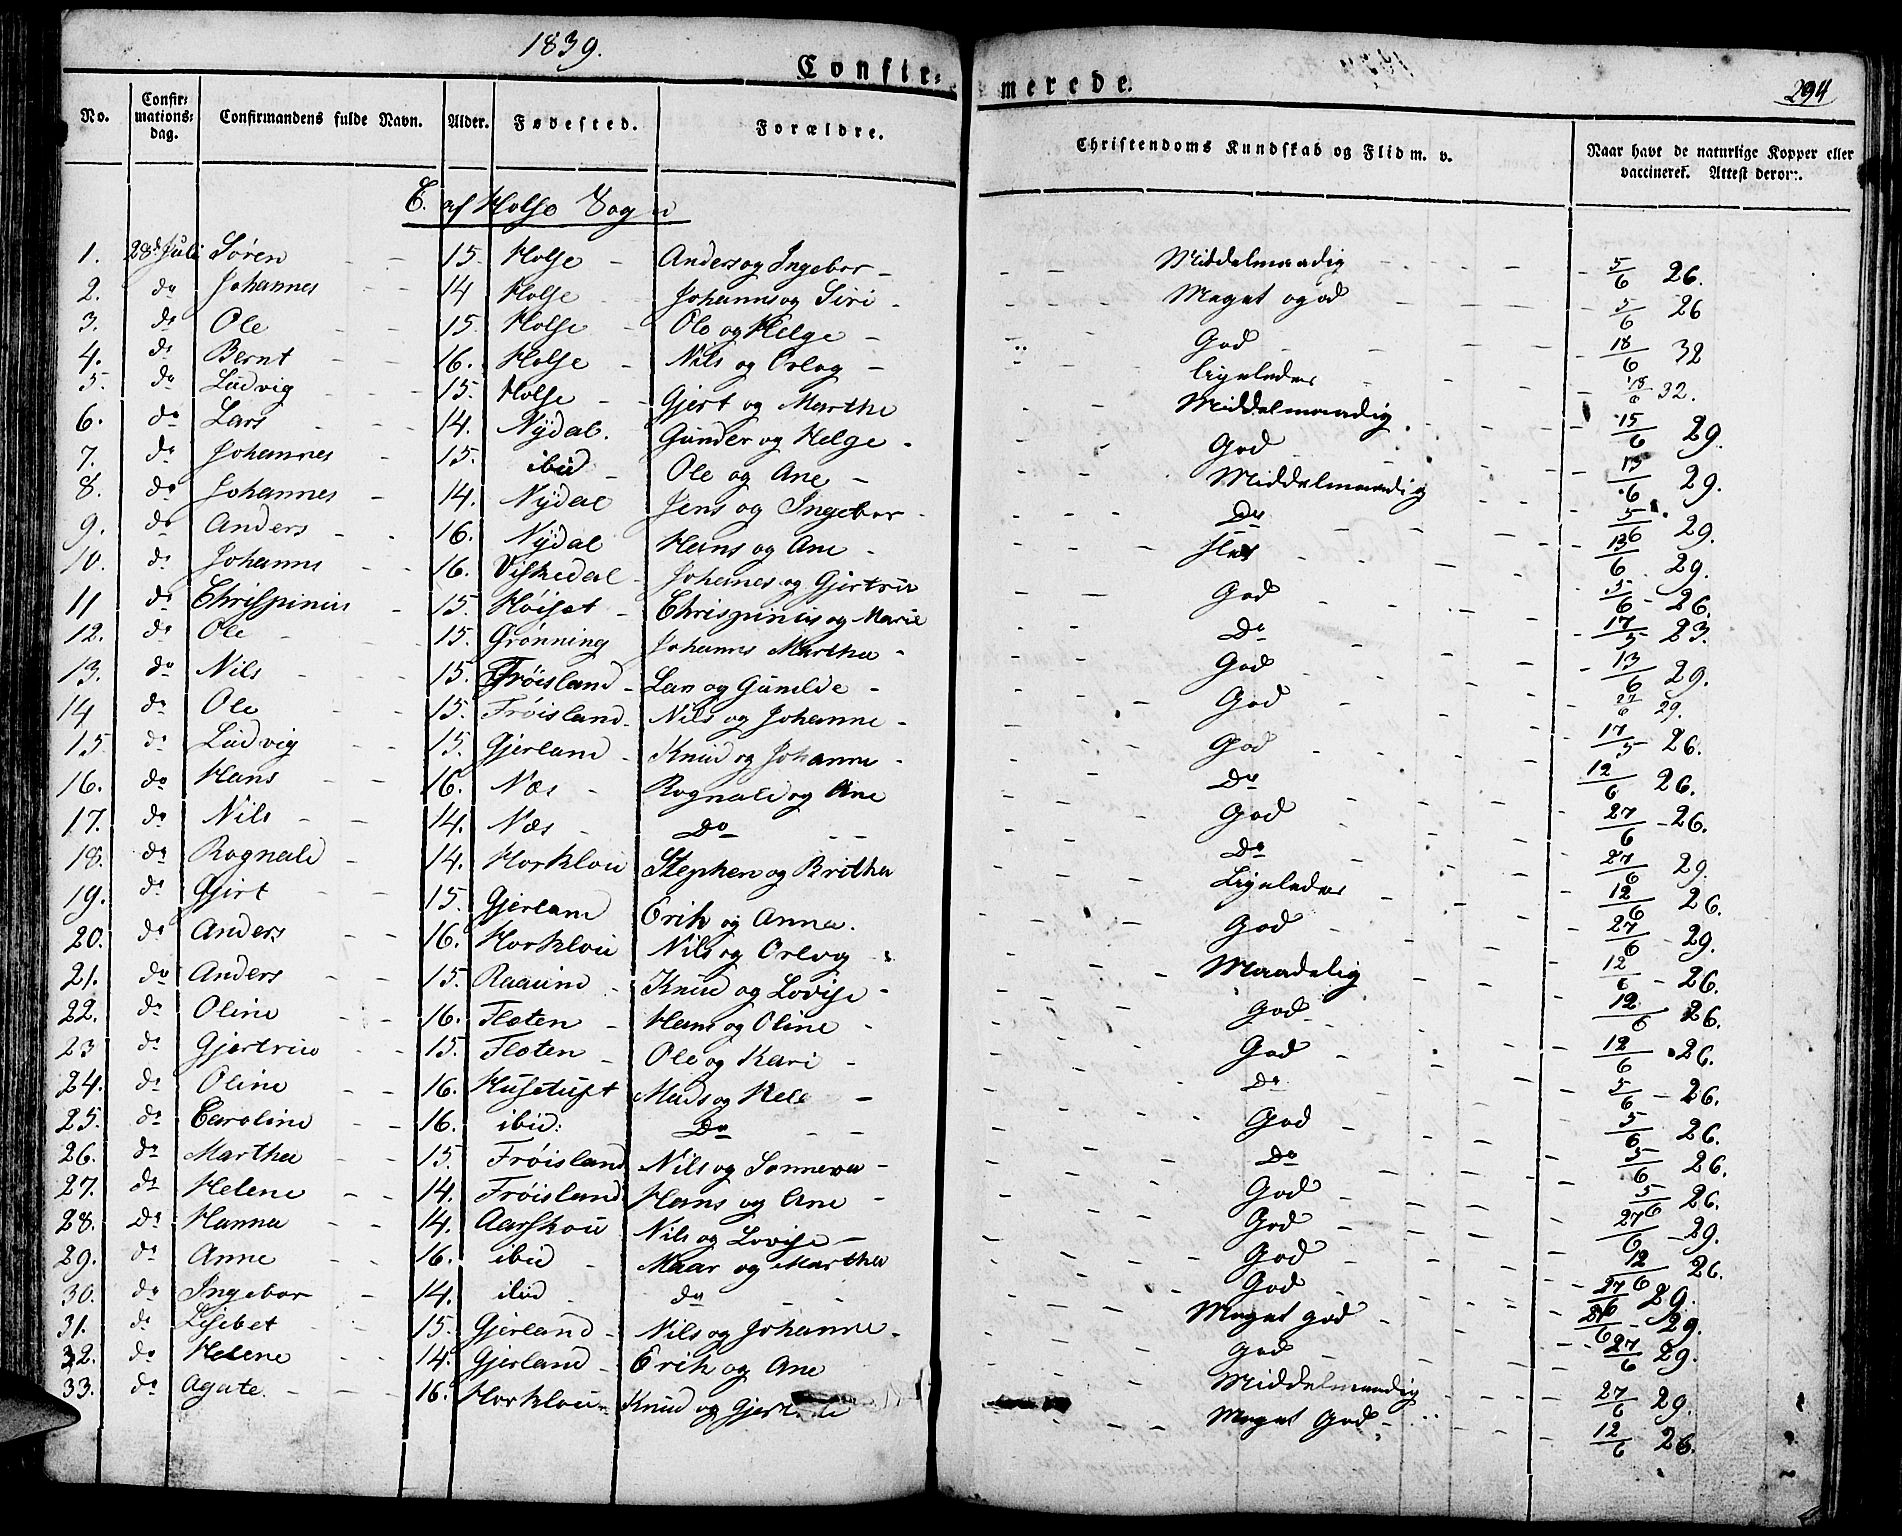 1839.
Confir-
merede.
294
No.
Confir-
mations-
dag.
Confirmandens fulde Navn.
Alder.
Fødested.
Forældre.
Christendoms Kundskab og Flid m. v.
Naar havt de naturlige Kopper eller
vaccineret. Attest derom.
C. af Holse Sogn
1. 28de Juli Søren 15. Holse Anders og Ingebor Middelmaadig 5/6 26.
2. do Johannes 14 Holse Johannes og Siri Meget god 5/6 26
3. do Ole 15. Holse Ole og Helge God 18/6 32
4. do Bernt 16. Holse Nils og Orlog ligeledes 18/6 32.
5. do Ludvig 15. Holse Gjert og Marthe Middelmaadig 15/6 29.
6. do Lars 14. Nydal. Gunder og Helge God 13/6 29.
7. do Johannes 15. ibid Ole og Ane Middelmaadig 5/6 29.
8. do Johannes 14. Nydal Jens og Ingebor Do 13/6 29.
9. do Anders 16. Nydal Hans og Ane slet 5/6 26.
10. do Johannes 16. Viskedal Johannes og Gjertrud God 17/5 23.
11 do Chrispinius 15. Høiset Chrispinius og Marie Do 13/6 29.
12. do Ole 15. Grønning Johannes Martha God 29.
13. do Nils 15. Frøisland Lars og Gunilde God 17/5 26.
14 do Ole 15. Frøisland Nils og Johanne God 12/6 26.
15. do Ludvig 15. Gjerland Knud og Johanne Do 27/6 26.
16. do Hans 16. Næs Rognald og Ane God 27/6 29.
17. do Nils 14. Næs Do Do 12/6 26.
18. do Rognald 14. Horklou Stephen og Britha Ligeledes 27/6 29.
19. do Gjert 15. Gjerland Erik og Anna. God 12/6 26.
20. do Anders 16. Horklou Nils og Orlog Maadelig 12/6 26.
21. do Anders 15. Raaund Knud og Lovise God 12/6 26.
22. do Oline 16. Floten Hans og Oline God 5/6 26.
23 do Gjertrud 15. Floten Ole og Kari Do 5/6 26.
24. do Oline 16. Husetuft Mads og Hele God 5/6 26.
25. do Caroline 16. ibid: Do Do 5/6 26.
26. do Martha 15. Frøisland Nils og Sonneva God 27/6 29.
27. do Helene 14. Frøisland Hans og Ane God 12/6 26.
28. Do Hanna 14. Aarskou Nils og Lovise God 27/6 29.
29. do Anne 16. ibid Maar og Martha God 27/6 29.
30. do Ingebor 14. ibid do Meget god 27/6 29.
31. do Lisebet 15. Gjerland Nils og Johanne God 27/6 29.
32. do Helene 14. Gjerland Erik og Ane Middelmaadig 27/6 29.
33. do Agate. 16. Horklou Knud og Meget God 12/6 26.